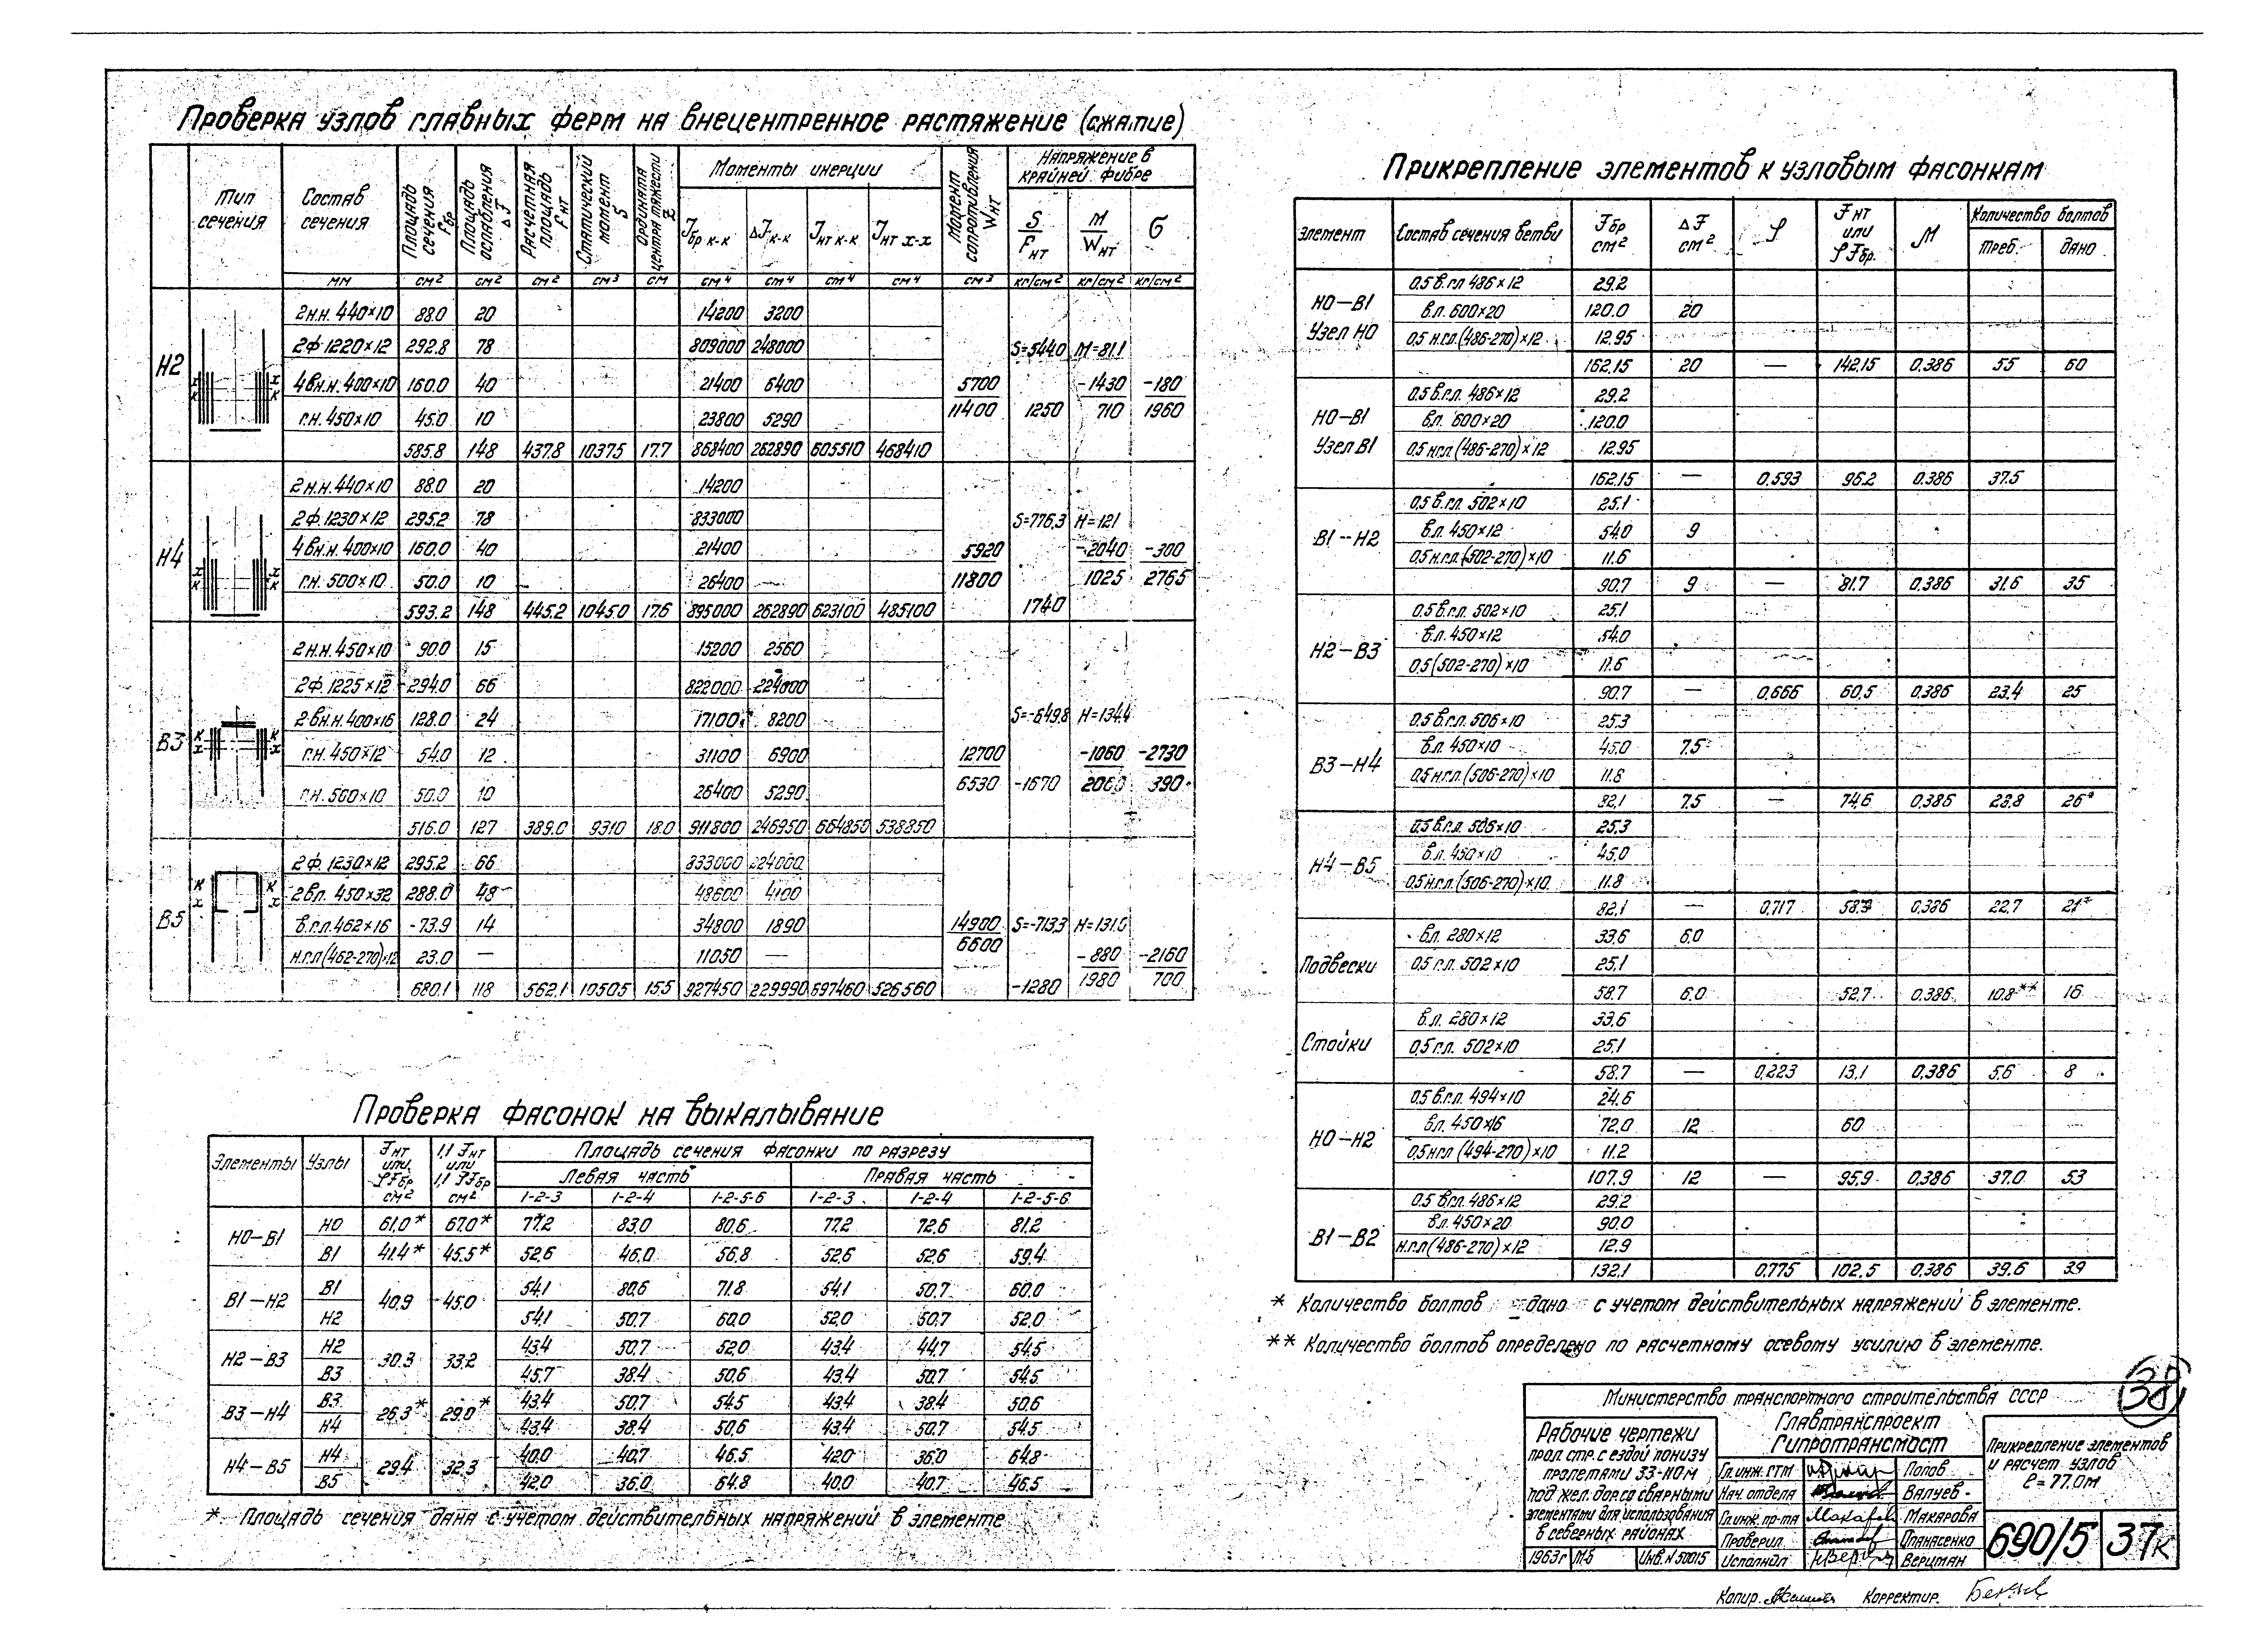 Проверка узлов главных ферм на внецентренное растяжение (сжатие)
Тип сечения | Состав сечения | Площадь сечения Fбр | Площадь ослабления ΔF | Расчетная площадь Fнт | Статический момент S | Ордината центра тяжести Z | Моменты инерции | Момент сопротивления Wнт | Напряжение в крайней фибре
Jбр к-к | ΔJк-к | Jнт к-к | Jнт х-х | S/Fнт | M/Wнт | σ
мм | см² | см² | см² | см³ | см | см⁴ | см⁴ | см⁴ | см⁴ | см³ | кг/см² | кг/см² | кг/см²
Н2
2н.н. 440×10 | 88.0 | 20 | 14200 | 3200
2ф 1220×12 | 292.8 | 78 | 809000 | 248000 | S=544.0 | М=81.1
4вн.н. 400×10 | 160.0 | 40 | 21400 | 6400 | 5700 | -1430 | -180
г.н. 450×10 | 45.0 | 10 | 23800 | 5290 | 11400 | 1250 | 710 | 1960
585.8 | 148 | 437.8 | 10375 | 17.7 | 868400 | 262890 | 605510 | 468410
Н4
2н.н. 440×10 | 88.0 | 20 | 14200
2ф. 1230×12 | 295.2 | 78 | 833000 | S=776.3 | Н=121
4вн.н. 400×10 | 160.0 | 40 | 21400 | 5920 | -2040 | -300
г.н. 500×10 | 50.0 | 10 | 26400 | — | 11800 | 1025 | 2765
593.2 | 148 | 445.2 | 10450 | 17.6 | 895000 | 262890 | 623100 | 485100 | 1740
В3
2н.н. 450×10 | 90.0 | 15 | 15200 | 2560
2ф. 1225×12 | 294.0 | 66 | 822000 | 224000
2вн.н. 400×16 | 128.0 | 24 | 17100 | 8200 | S=-649.8 | Н=134.4
г.н. 450×12 | 54.0 | 12 | 31100 | 6900 | 12700 | -1060 | -2730
г.н. 500×10 | 50.0 | 10 | 26400 | 5290 | 6530 | -1670 | 2060 | 390
516.0 | 127 | 389.0 | 9310 | 18.0 | 911800 | 246950 | 664850 | 538850
В5
2ф. 1230×12 | 295.2 | 66 | 833000 | 224000
2вл. 450×32 | 288.0 | 48 | 48600 | 4100
в.г.л. 462×16 | 73.9 | 14 | 34800 | 1890 | 14900 | S=-713.3 | Н=131.0
н.г.л (462-270)×12 | 23.0 | — | 11050 | — | 6600 | -880 | -2160
680.1 | 118 | 562.1 | 10505 | 15.5 | 927450 | 229990 | 697460 | 526560 | -1280 | 1980 | 700
Проверка фасонок на выкалывание
Элементы | Узлы | Fнт или φFбр см² | 1,1 Fнт или 1,1 φFбр см² | Площадь сечения фасонки по разрезу
Левая часть | Правая часть
1-2-3 | 1-2-4 | 1-2-5-6 | 1-2-3 | 1-2-4 | 1-2-5-6
Н0—В1 | Н0 | 61.0* | 67.0* | 77.2 | 83.0 | 80.6 | 77.2 | 72.6 | 81.2
В1 | 41.4* | 45.5* | 52.6 | 46.0 | 56.8 | 52.6 | 52.6 | 59.4
В1—Н2 | В1 | 40.9 | 45.0 | 54.1 | 80.6 | 71.8 | 54.1 | 50.7 | 60.0
Н2 | 54.1 | 50.7 | 60.0 | 52.0 | 50.7 | 52.0
Н2—В3 | Н2 | 30.3 | 33.2 | 43.4 | 50.7 | 52.0 | 43.4 | 44.7 | 54.5
В3 | 45.7 | 38.4 | 50.6 | 43.4 | 50.7 | 54.5
В3—Н4 | В3 | 26.3* | 29.0* | 43.4 | 50.7 | 54.5 | 43.4 | 38.4 | 50.6
Н4 | 43.4 | 38.4 | 50.6 | 43.4 | 50.7 | 54.5
Н4—В5 | Н4 | 29.4 | 32.3 | 40.0 | 40.7 | 46.5 | 42.0 | 36.0 | 64.8
В5 | 42.0 | 36.0 | 64.8 | 40.0 | 40.7 | 46.5
* Площадь сечения дана с учетом действительных напряжений в элементе
Прикрепление элементов к узловым фасонкам
Элемент | Состав сечения ветви | Fбр см² | ΔF см² | φ | Fнт или φFбр. | М | Количество болтов
Треб. | дано
Н0—В1 Узел Н0
0.5 в.г.л 486×12 | 29.2
вл. 600×20 | 120.0 | 20
0,5 н.г.л. (486-270)×12 | 12.95
162.15 | 20 | — | 142.15 | 0.386 | 55 | 60
Н0—В1 Узел В1
0.5 в.г.л. 486×12 | 29.2
вл. 600×20 | 120.0
0,5 н.г.л (486-270)×12 | 12.95
162.15 | — | 0.593 | 96.2 | 0.386 | 37.5
В1—Н2
0,5 в.г.л. 502×10 | 25.1
вл. 450×12 | 54.0 | 9
0.5 н.г.л. (502-270)×10 | 11.6
90.7 | 9 | — | 81.7 | 0.386 | 31.6 | 35
Н2—В3
0.5 в.г.л. 502×10 | 25.1
в.л. 450×12 | 54.0
0,5 (502-270)×10 | 11.6
90.7 | — | 0.666 | 60.5 | 0.386 | 23.4 | 25
В3—Н4
0.5 в.г.л. 506×10 | 25.3
в.л. 450×10 | 45.0 | 7.5
0.5 н.г.л. (506-270)×10 | 11.8
82.1 | 7.5 | — | 74.6 | 0.386 | 28.8 | 26*
Н4—В5
0.5 в.г.л. 506×10 | 25.3
в.л. 450×10 | 45.0
0.5 н.г.л. (506-270)×10 | 11.8
82.1 | — | 0.717 | 58.9 | 0,386 | 22.7 | 21*
Подвески
вл. 280×12 | 33.6 | 6.0
0.5 г.л. 502×10 | 25.1
58.7 | 6.0 | 52.7 | 0.386 | 10.8** | 16
Стойки
в.л. 280×12 | 33.6
0,5 г.л. 502×10 | 25.1
58.7 | — | 0.223 | 13.1 | 0.386 | 5.6 | 8
Н0—Н2
0.5 в.г.л. 494×10 | 24.6
вл. 450×16 | 72.0 | 12 | 60
0,5 н.г.л (494-270)×10 | 11.2
107.9 | 12 | — | 95.9 | 0.386 | 37.0 | 53
В1—В2
0.5 в.г.л. 486×12 | 29.2
вл. 450×20 | 90.0
н.г.л (486-270)×12 | 12.9
132.1 | 0.775 | 102.5 | 0.386 | 39.6 | 39
* Количество болтов дано с учетом действительных напряжений в элементе.
** Количество болтов определено по расчетному осевому усилию в элементе.
38
Министерство транспортного строительства СССР
Рабочие чертежи
прол. стр. с ездой понизу
пролетами 33-110 м
под жел. дор. со сварными
элементами для использования
в северных районах
1963г | М-б | Инв. N 50015
Главтранспроект
Гипротрансмост
Гл. инж. ГТМ | Попов
Нач. отдела | Валуев
Гл. инж. пр-та | Макаров | Макарова
Проверил | Опанасенко
Исполнил | Верцман
Прикрепление элементов
и расчет узлов
ℓ=77.0м
690/5 | 37к
Копир. Корректир.